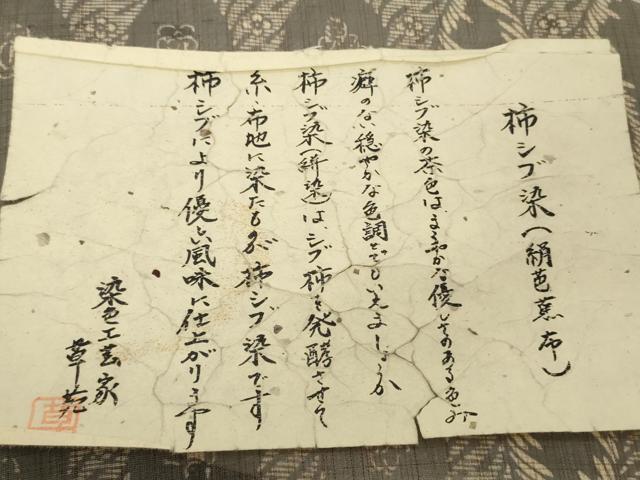 柿シブ染(絹芭蕉布)
柿シブ染の茶色は、まろやかな優しさのある色
癖のない穏やかな色調とでもいえましょうか
柿シブ染(絣染)は、シブ柿を発酵させて
糸、布地に染たものが柿シブ染です
柿シブにより優しい風味に仕上がります
染色工芸家